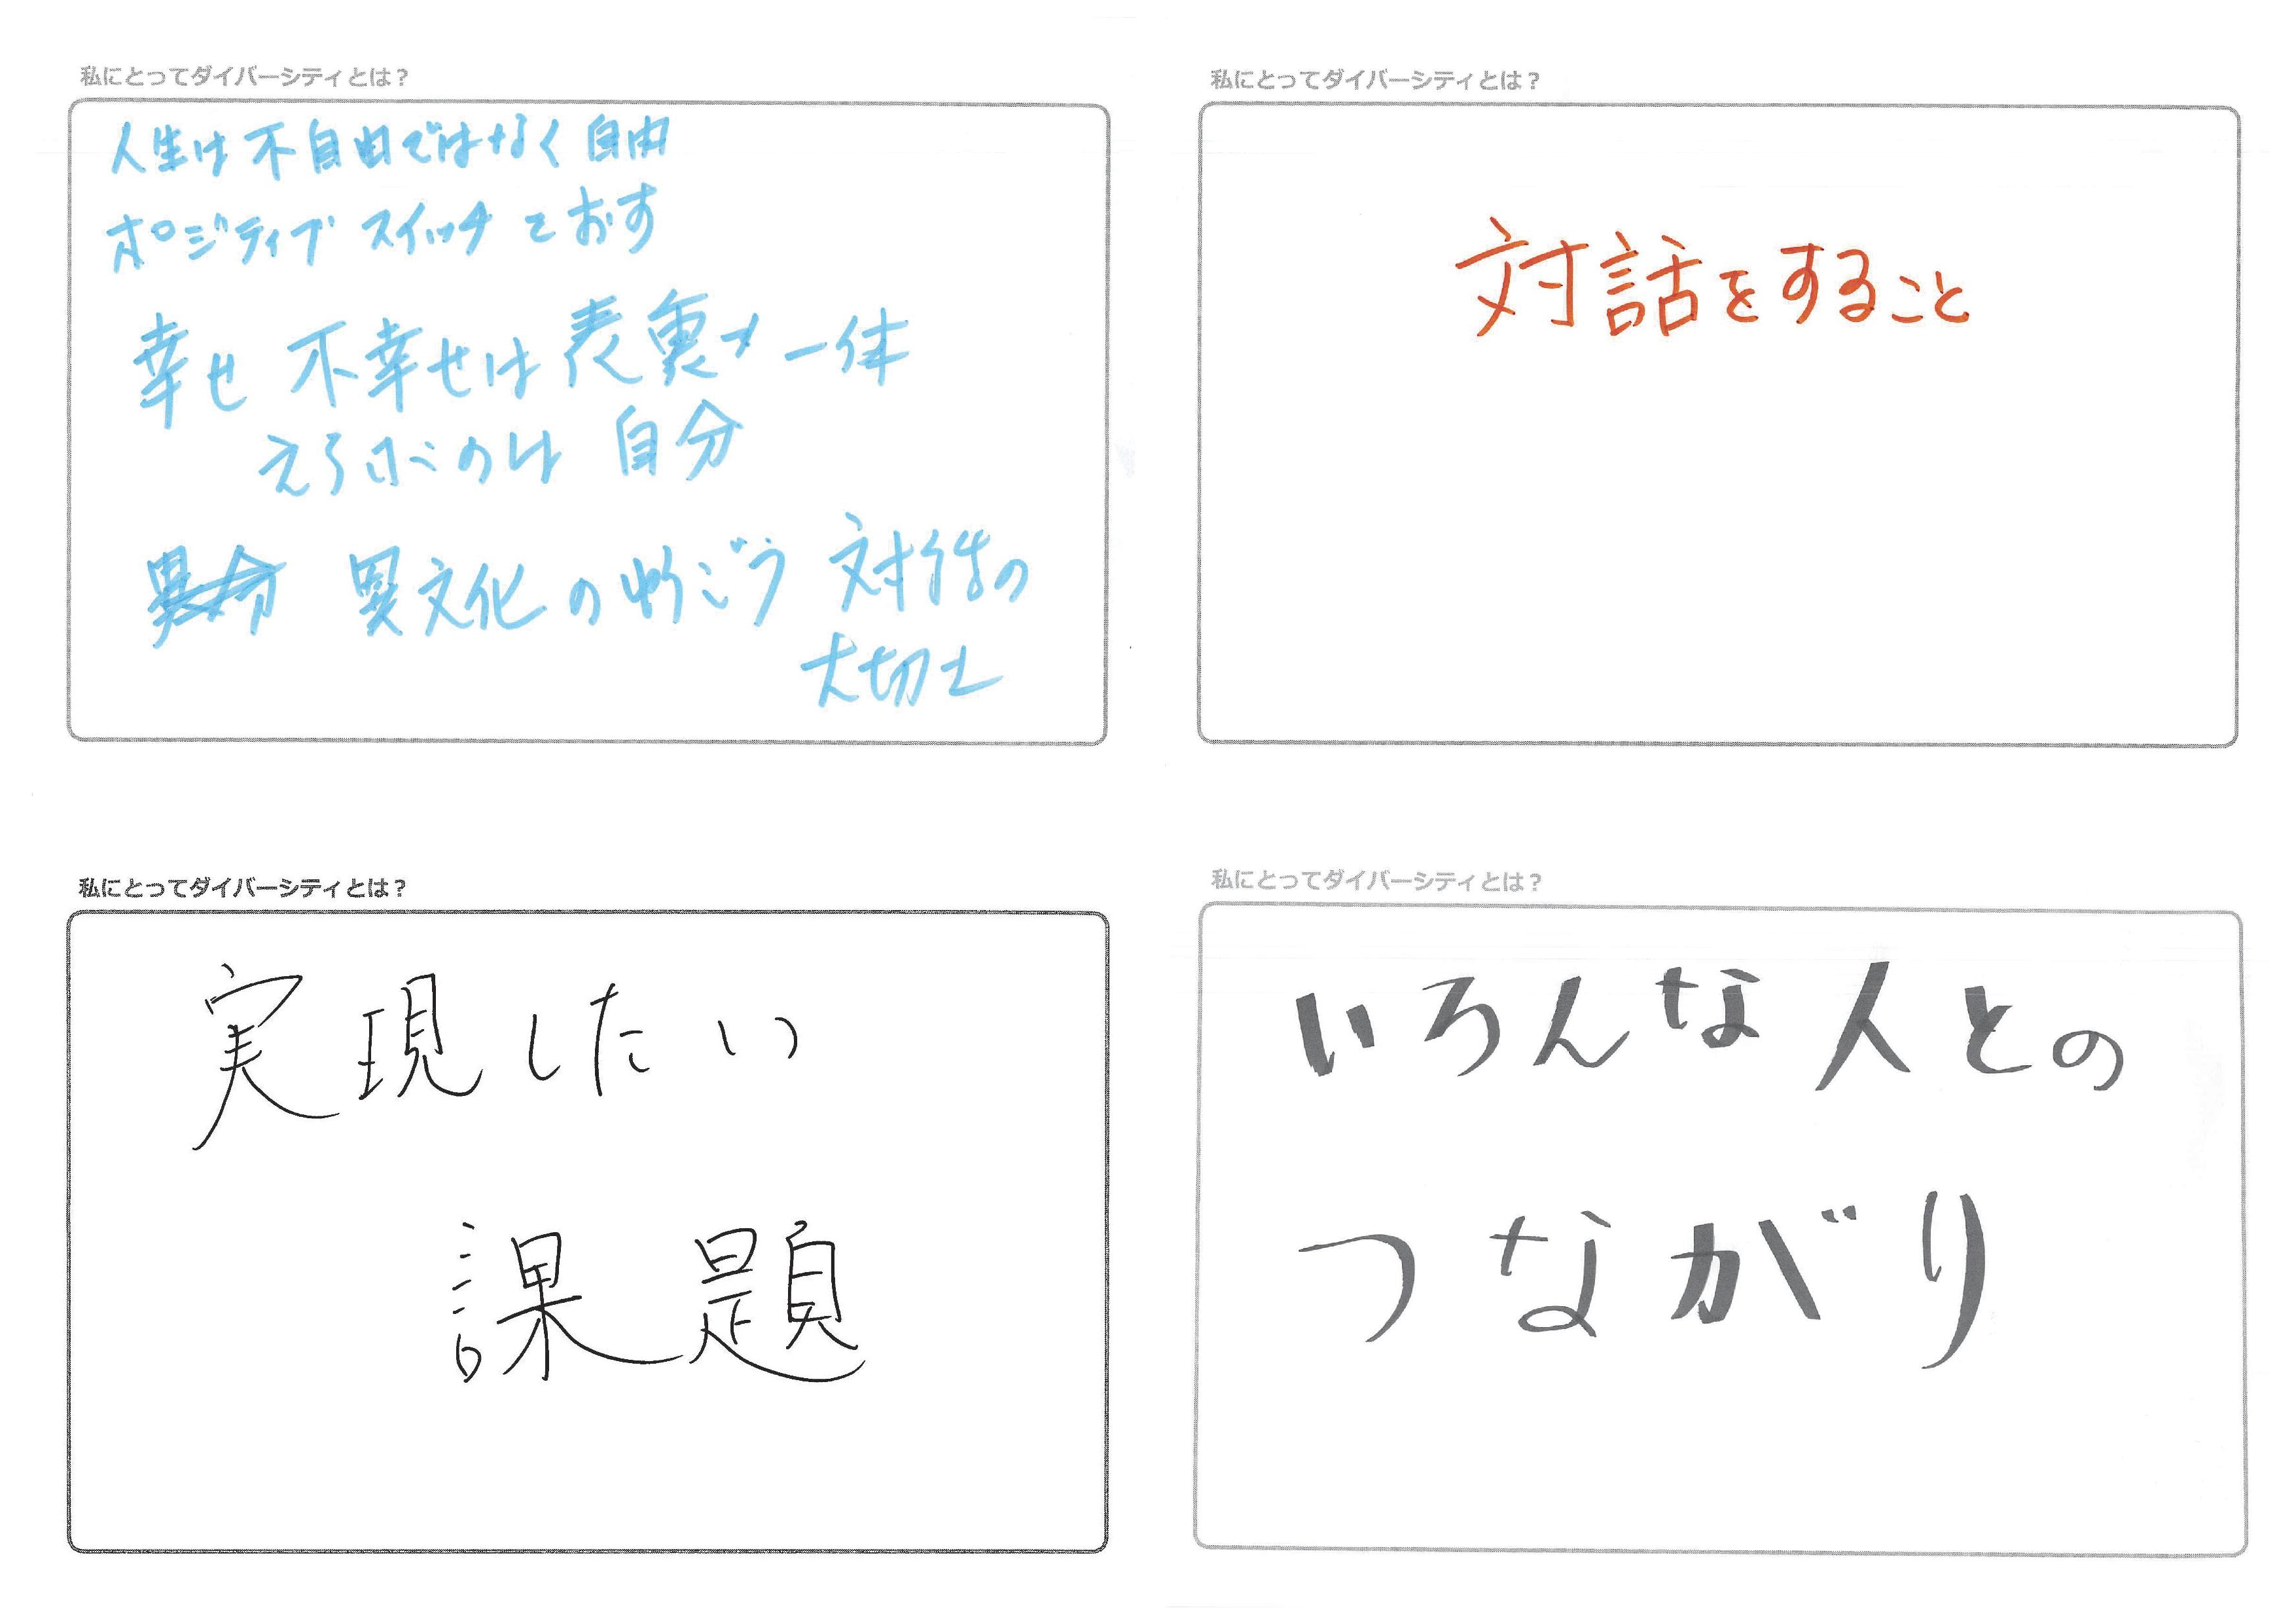 私にとってダイバーシティとは？
人生は不自由ではなく自由
ポジティブスイッチをおす
幸せ 不幸せは表裏一体
えらぶのは 自分
異文化の 対話の
大切さ
私にとってダイバーシティとは？
対話をすること
私にとってダイバーシティとは？
実現したい
課題
私にとってダイバーシティとは？
いろんな人との
つながり